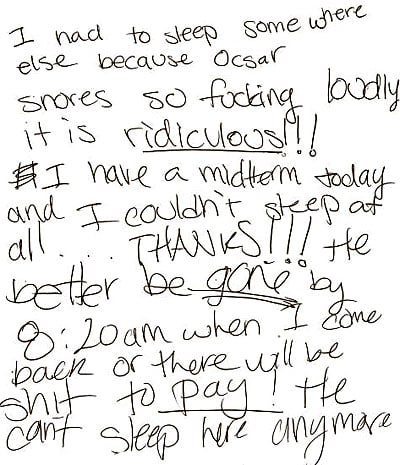 I had to sleep some where
else because Ocsar
snores so fucking loudly
it is ridiculous!!!
I have a midterm today
and I couldn't sleep at
all... THANKS!!! He
better be gone by
8:20am when I come
back or there will be
shit to pay! He
can't sleep here anymore